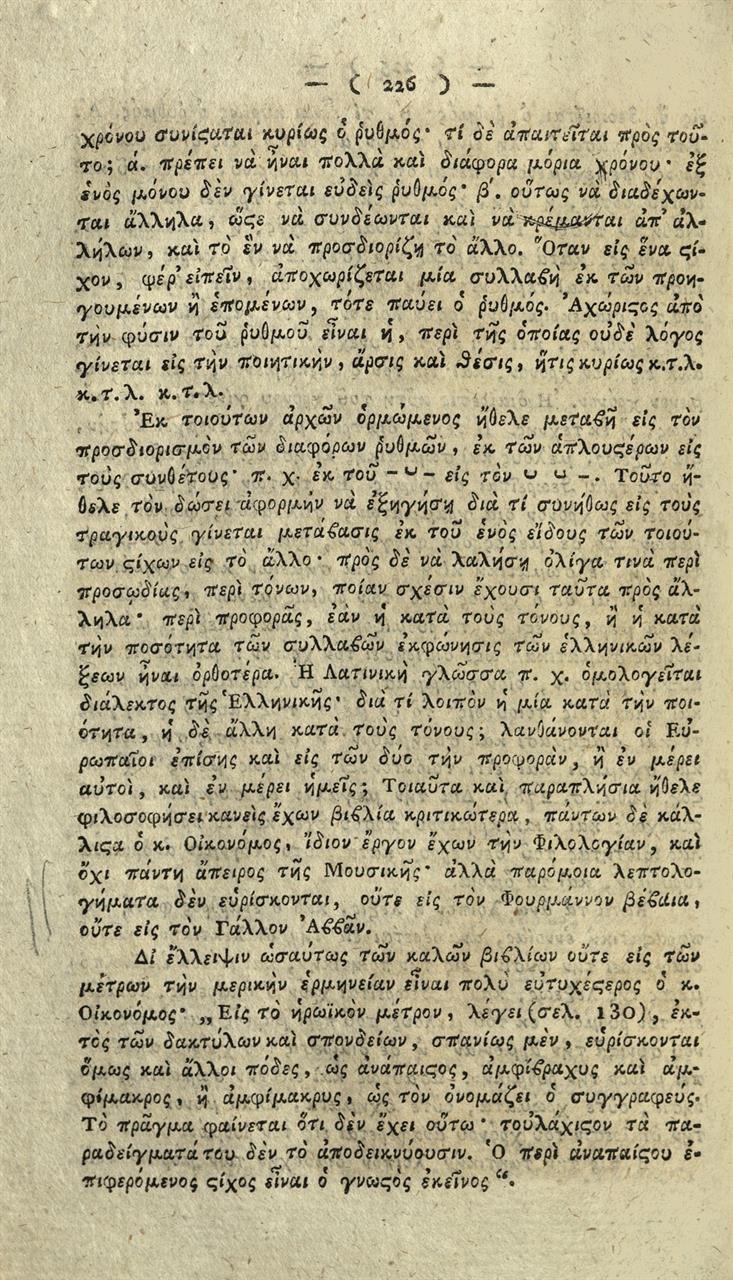 — ( 226 ) —
χρόνου συνίϛαται κυρίως ὁ ῥυθμός· τί δὲ ἀπαιτεῖται πρὸς τοῦ-
το; ά. πρέπει νὰ ἦναι πολλὰ καὶ διάφορα μόρια χρόνου· ἐξ
ἑνὸς μόνου δὲν γίνεται εὐδεὶς ῥυθμός· β΄. οὕτως νὰ διαδέχων-
ται ἄλληλα, ὥϛε νὰ συνδέωνται καὶ νὰ κρέμανται ἀπ' ἀλ-
λήλων, καὶ τὸ ἓν νὰ προσδιορίζῃ τὸ ἄλλο. Ὅταν εἰς ἕνα ϛί-
χον, φέρ' εἰπεῖν, ἀποχωρίζεται μία συλλαβὴ ἐκ τῶν προη-
γουμένων ἢ ἑπομένων, τότε παύει ὁ ῥυθμός. Ἀχώριϛος ἀπὸ
τὴν φύσιν τοῦ ῥυθμοῦ εἶναι ἡ, περὶ τῆς ὁποίας οὐδὲ λόγος
γίνεται εἰς τὴν ποιητικὴν, ἄρσις καὶ θέσις, ἥτις κυρίως κ.τ.λ.
κ.τ.λ. κ.τ.λ.
Ἐκ τοιούτων ἀρχῶν ὁρμώμενος ἤθελε μεταβῆ εἰς τὸν
προσδιορισμὸν τῶν διαφόρων ῥυθμῶν, ἐκ τῶν ἁπλουϛέρων εἰς
τοὺς συνθέτους· π. χ. ἐκ τοῦ – ᴗ – εἰς τὸν ᴗ ᴗ –. Τοῦτο ἤ-
θελε τὸν δώσει ἀφορμὴν νὰ ἐξηγήσῃ διὰ τί συνήθως εἰς τοὺς
τραγικοὺς γίνεται μετάβασις ἐκ τοῦ ἑνὸς εἴδους τῶν τοιού-
των ϛίχων εἰς τὸ ἄλλο· πρὸς δὲ νὰ λαλήσῃ ὀλίγα τινὰ περὶ
προσῳδίας, περὶ τόνων, ποίαν σχέσιν ἔχουσι ταῦτα πρὸς ἄλ-
ληλα· περὶ προφορᾶς, ἐὰν ἡ κατὰ τοὺς τόνους, ἢ ἡ κατὰ
τὴν ποσότητα τῶν συλλαβῶν ἐκφώνησις τῶν ἑλληνικῶν λέ-
ξεων ἦναι ὀρθοτέρα. Ἡ Λατινικὴ γλῶσσα π. χ. ὁμολογεῖται
διάλεκτος τῆς Ἑλληνικῆς· διὰ τί λοιπὸν ἡ μία κατὰ τὴν ποι-
ότητα, ἡ δὲ ἄλλη κατὰ τοὺς τόνους; λανθάνονται οἱ Εὐ-
ρωπαῖοι ἐπίσης καὶ εἰς τῶν δύο τὴν προφορὰν, ἢ ἐν μέρει
αὐτοὶ, καὶ ἐν μέρει ἡμεῖς; Τοιαῦτα καὶ παραπλήσια ἤθελε
φιλοσοφήσει κανεὶς ἔχων βιβλία κριτικώτερα, πάντων δὲ κάλ-
λιϛα ὁ κ. Οἰκονόμος, ἴδιον ἔργον ἔχων τὴν Φιλολογίαν, καὶ
ὄχι πάντη ἄπειρος τῆς Μουσικῆς· ἀλλὰ παρόμοια λεπτολο-
γήματα δὲν εὑρίσκονται, οὔτε εἰς τὸν Φουρμάννον βέβαια,
οὔτε εἰς τὸν Γάλλον Ἀββᾶν.
Δι' ἔλλειψιν ὡσαύτως τῶν καλῶν βιβλίων οὔτε εἰς τῶν
μέτρων τὴν μερικὴν ἑρμηνείαν εἶναι πολὺ εὐτυχέϛερος ὁ κ.
Οἰκονόμος· „Εἰς τὸ ἡρωϊκὸν μέτρον, λέγει (σελ. 130), ἐκ-
τὸς τῶν δακτύλων καὶ σπονδείων, σπανίως μὲν, εὑρίσκονται
ὅμως καὶ ἄλλοι πόδες, ὡς ἀνάπαιϛος, ἀμφίβραχυς καὶ ἀμ-
φίμακρος, ἢ ἀμφίμακρυς, ὡς τὸν ὀνομάζει ὁ συγγραφεύς.
Τὸ πρᾶγμα φαίνεται ὅτι δὲν ἔχει οὕτω· τοὐλάχιϛον τὰ πα-
ραδείγματά του δὲν τὸ ἀποδεικνύουσιν. Ὁ περὶ ἀναπαίϛου ἐ-
πιφερόμενος ϛίχος εἶναι ὁ γνωϛὸς ἐκεῖνος“.